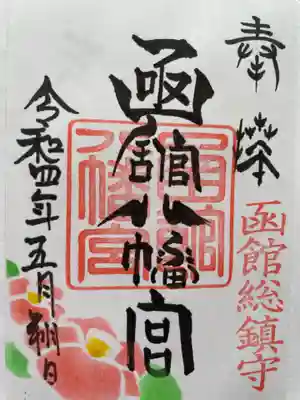 奉拝
函館総鎮守
函館八幡宮
函館
八幡宮
令和四年五月朔日